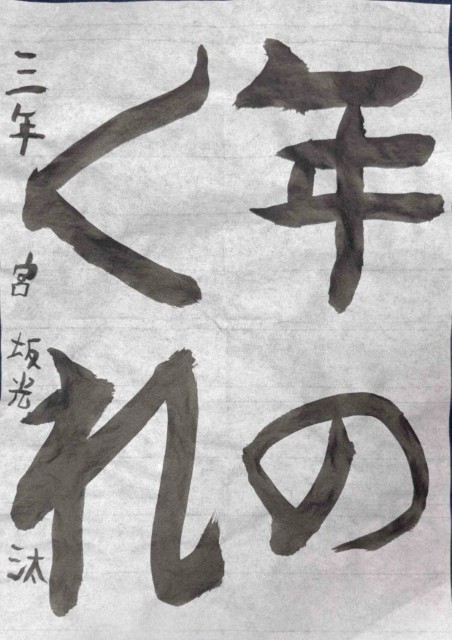 年の
くれ
三年 宮坂光汰